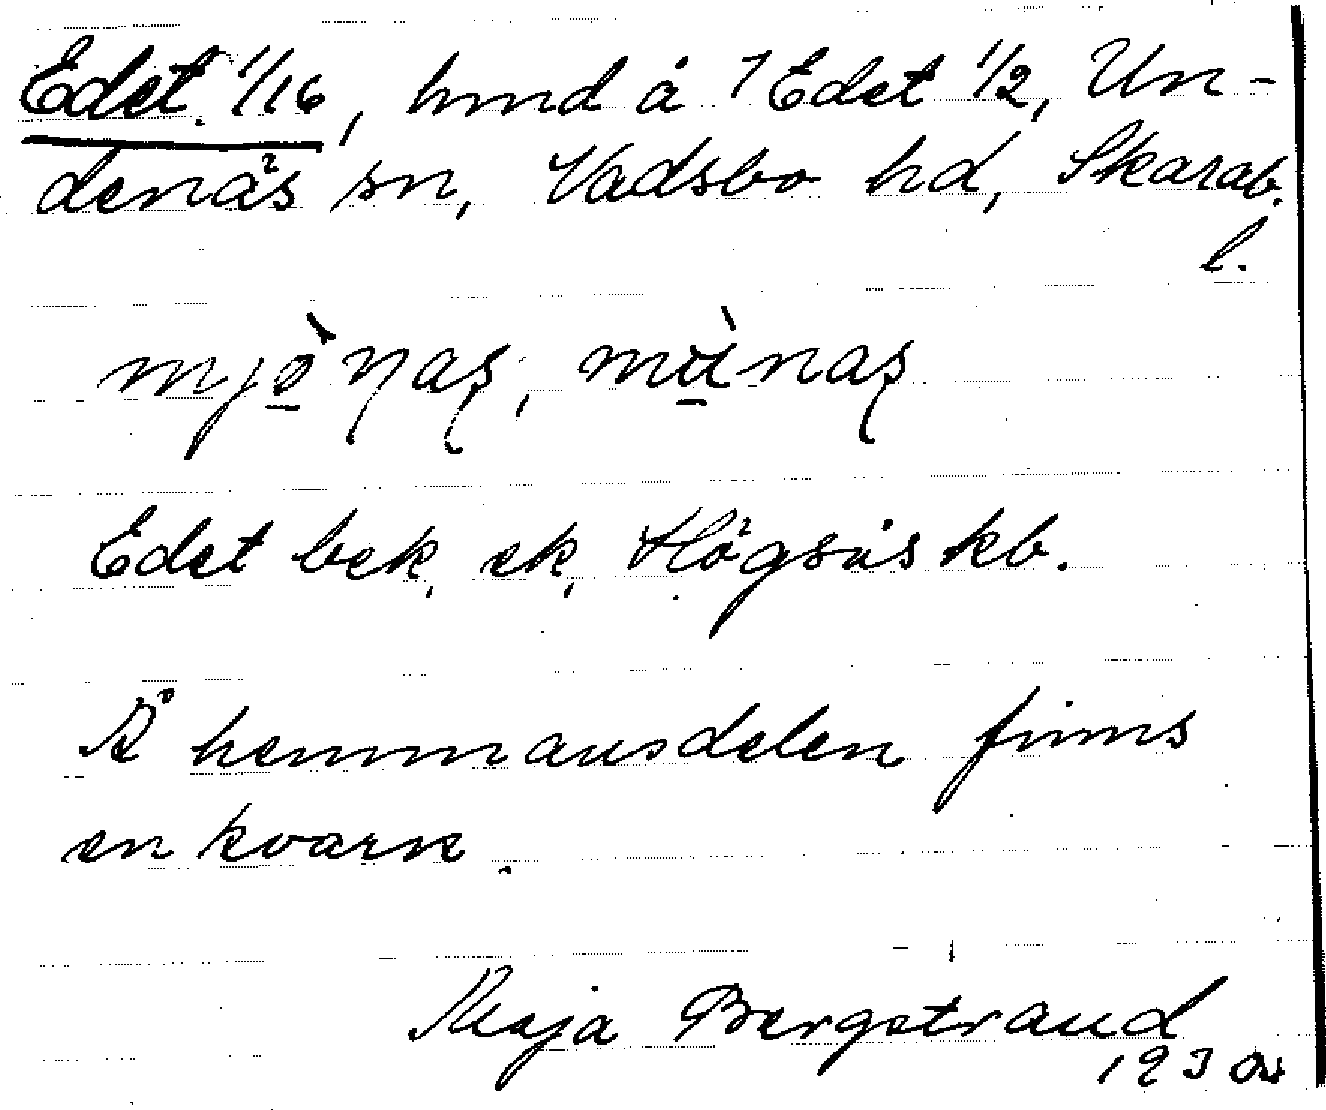 Edet 1/16, hmd å 1 Edet 1/2, Un-
denäs sn, Vadsbo hd, Skarab.
l.
Edet bek, ek, Högsås kb.
Å hemmansdelen finns
en kvarn.
Maja Bergstrand